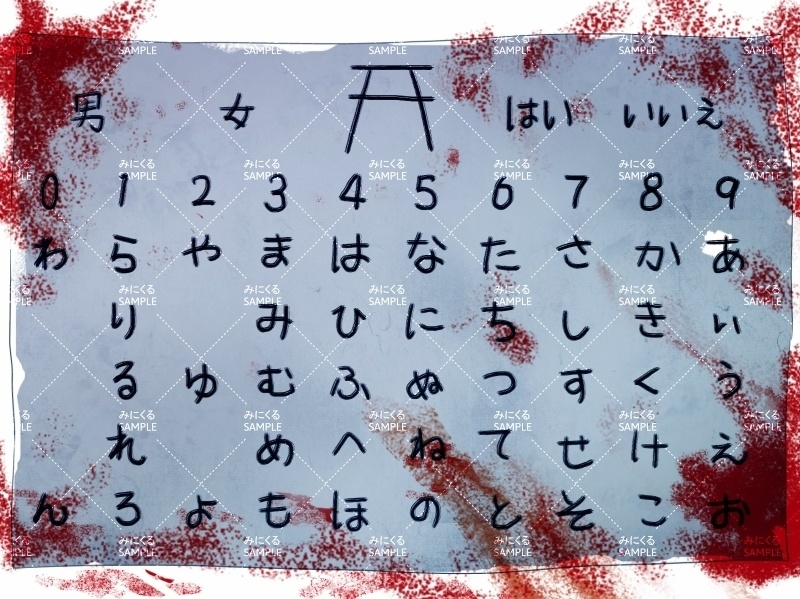 男 女 はい いいえ
0 1 2 3 4 5 6 7 8 9
わ ら や ま は な た さ か あ
り み ひ に ち し き い
る ゆ む ふ ぬ つ す く う
れ め へ ね て せ け え
ん ろ よ も ほ の と そ こ お
みにくる
SAMPLE